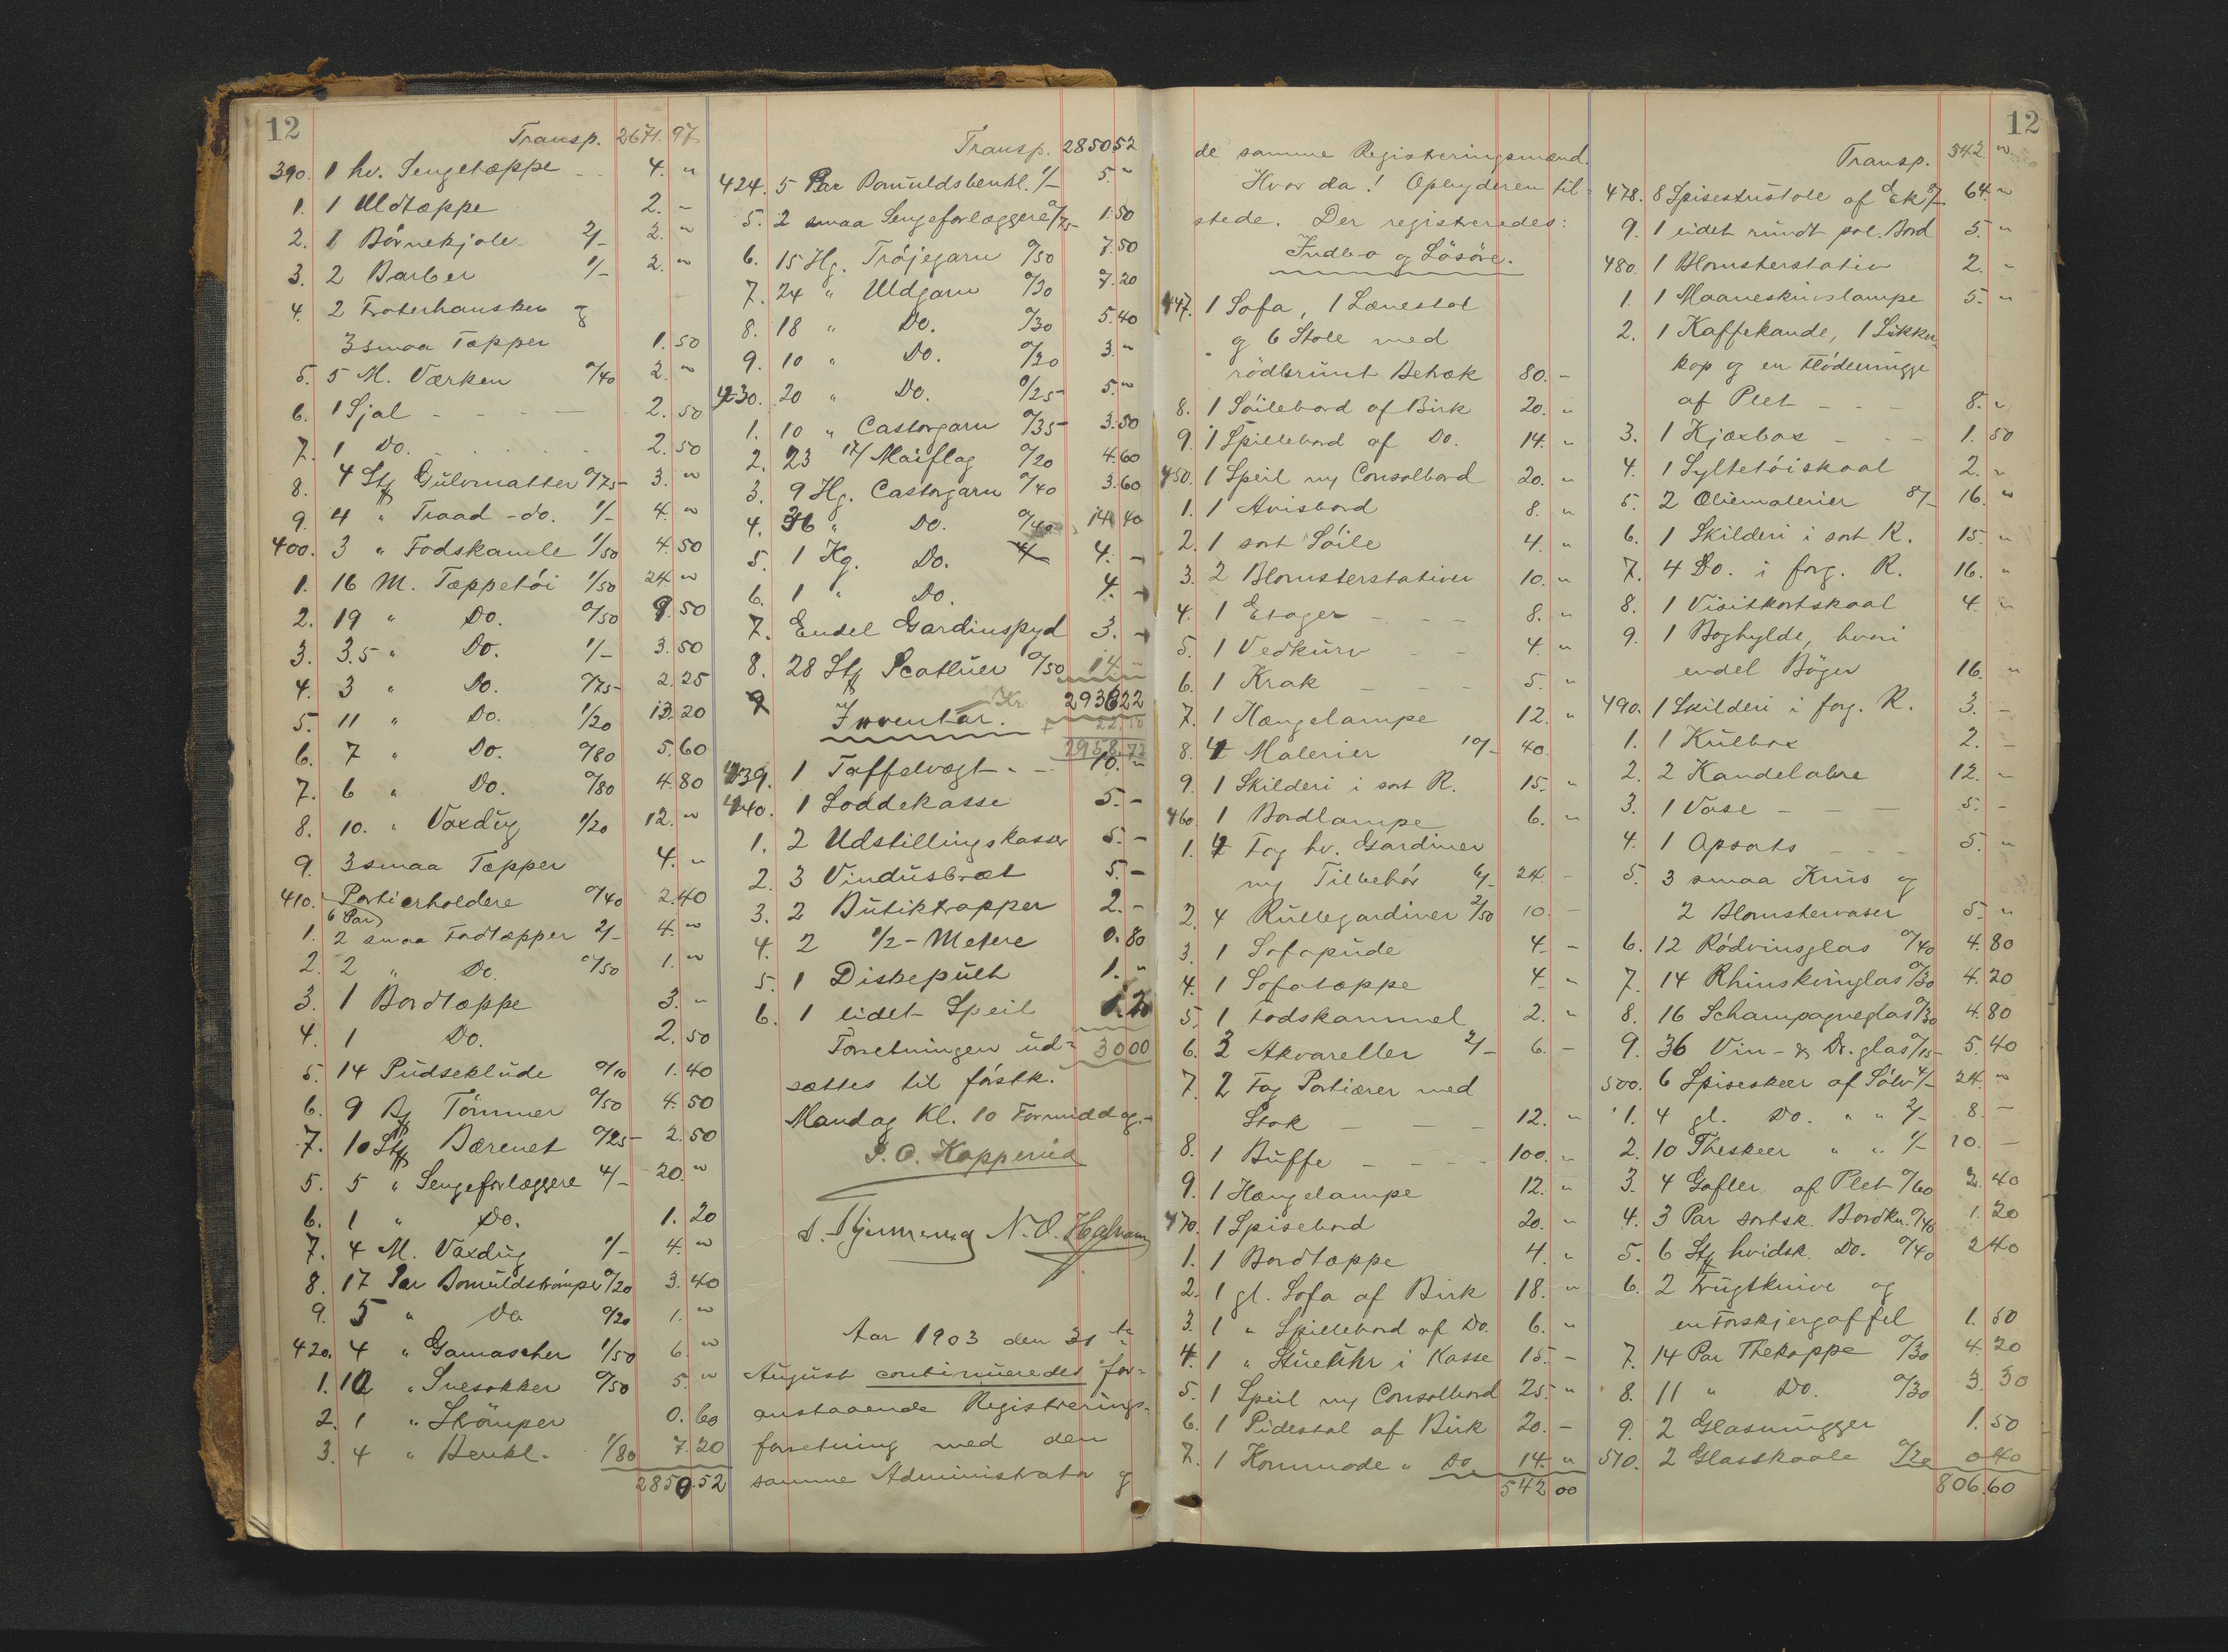 12
Transp. 2671.97
390. 1 hv. Sengetæppe 4. "
1. 1 Uldtæppe 2. -
2. 1 Börnekjole 2/- 2. "
3. 2 Barber 1/- 2. "
4. 2 Froterhansker og
3 smaa Tæpper 1.50
5. 5 M. Værken 0/40 2. "
6. 1 Sjal - - - - 2.50
7. 1 Do. . . . . . 2.50
8. 4 Stk Gulvmatter 0/75 3. "
9. 4 " Traad-do. 1/- 4. "
400. 3 " Fodskamle 1/50 4.50
1. 16 M. Tæppetöi 1/50 24 "
2. 19 " Do. 0/50 9.50
3. 3.5 " Do. 1/- 3.50
4. 3 " Do. 0/75 2.25
5. 11 " Do. 1/20 13.20
6. 7 " Do. 0/80 5.60
7. 6 " Do. 0/80 4.80
8. 10. " Voxdug 1/20 12. "
9. 3 smaa Tæpper 4. "
410. Portierholdere 0/40 2.40
6 Par
1. 2 smaa Fodtæpper 2/- 4. "
2. 2 " Do. 0/50 1. "
3. 1 Bordtæppe 3. "
4. 1 Do. 2.50
5. 14 Pudseklude 0/10 1.40
6. 9 Tömmer 0/50 4.50
7. 10 Stk Bærenet 0/25 2.50
5. 5 " Sengeforlæggere 4/- 20. "
6. 1 " Do. 1.20
7. 4 M. Vaxdug 1/- 4. "
8. 17 Par Bomuldströmper 0/20 3.40
9. 5 " Do 0/20 1. "
420. 4 " Gamascher 1/50 6. "
1. 10 " Snesokker 0/50 5. "
2. 1 " Strömper 0.60
3. 4 " Benkl. 1/80 7.20
2850.52
Transp. 2850 52
424. 5 Par Bomuldsbenkl. 1/- 5. "
5. 2 smaa Sengeforlæggere 0/75 1.50
6. 15 Hg. Tröjegarn 0/50 7.50
7. 24 " Uldgarn 0/30 7.20
8. 18 " Do. 0/30 5.40
9. 10 " Do. 0/30 3. "
430. 20 " Do. 0/25 5. "
1. 10 " Castorgarn 0/35 3.50
2. 23 Maiflag 0/20 4.60
3. 9 Hg. Castorgarn 0/40 3.60
4. 36 " Do. 0/40 14.40
5. 1 Kg. Do. 4. -
6. 1 " Do. 4. -
7. Endel Gardinspyd 3. -
8. 28 Stk Scatluer 0/50 14 -
9 Kr. 2936 22
Inventar. + 22.50
2958.72
439. 1 Taffelvægt - - 10. "
440. 1 Loddekasse 5. -
1. 2 Udstillingskasser 5. -
2. 3 Vindusbræt 5. -
3. 2 Butiktrapper 2. -
4. 2 1/2 - Metere 0.80
5. 1 Diskepult 1. "
6. 1 lidet Speil
Forretningen ud= 3000
sættes til först k.
Mandag Kl. 10 Formiddag. -
N. O.
Aar 1903 den 31te
August continueredes for=
anstaaende Registrerings=
forretning med den
samme Administrator og
12
de samme Registreringsmænd.
Hvor da! Opbyderen til=
stede. Der registreredes:
Indbo og Lösöre.
447. 1 Sofa, 1 Lænestol
og 6 Stole med
rödbrunt Betræk 80. -
8. 1 Söilebord af Birk 20. "
9. 1 Spillebord af Do. 14. "
450. 1 Speil m/ Consolbord 20. "
1. 1 Avisbord 8. "
2. 1 sort Söile 4. "
3. 2 Blomsterstativer 10. "
4. 1 Etager - - - 8. "
5. 1 Vedkurv - - 4. "
6. 1 Krak - - - 5. "
7. 1 Hængelampe 12. "
8. 4 Malerier 10/- 40.
9. 1 Skilderi i sort R. 15. "
460. 1 Bordlampe 6. "
1. 4 Fag hv. Gardiner
m/ Tilbehör 6/- 24. -
2. 4 Rullegardiner 2/50 10. -
3. 1 Sofapude 4. -
4. 1 Sofatæppe 4. "
5. 1 Fodskammel 2. "
6. 3 Akvareller 2/- 6. -
7. 2 Fag Portiærer med
Stok - - - 12. "
8. 1 Buffe - - - - 100. "
9. 1 Hængelampe 12. "
470. 1 Spisebord 20. "
1. 1 Bordtæppe 4. "
2. 1 gl. Sofa af Birk 18. "
3. 1 " Spillebord af Do. 6. "
4. 1 " Stueuhr i Kasse 15. -
5. 1 Speil m/ Consolbord 25. "
6. 1 Pidestal af Birk 20. -
7. 1 Kommode " Do 14. "
542 00
12
Transp. 542. "
478. 8 Spisestustole af Ek 8/- 64. "
9. 1 lidet rundt pol. Bord 5. "
480. 1 Blomsterstativ 2. "
1. 1 Maaneskinslampe 5. "
2. 1 Kaffekande, 1 Sukker
kop og en Flödemugge
af Plet - - - 8. "
3. 1 Kjæxbox - - - 1.50
4. 1 Syltetöiskaal 2. "
5. 2 Oliemalerier 8/- 16. "
6. 1 Skilderi i sort R. 15. "
7. 4 Do. i forg. R. 16. "
8. 1 Visitkortskaal 4. "
9. 1 Boghylde, hvori
endel Böger 16. "
490. 1 Skilderi i forg. R. 3. -
1. 1 Kulbox 2. -
2. 2 Kandelabre 12. -
3. 1 Vase - - - 5. -
4. 1 Opsats - - - 5. "
5. 3 smaa Krus og
2 Blomstervaser 5. "
6. 12 Rödvinsglas 0/40 4.80
7. 14 Rhinskvinglas 0/30 4.20
8. 16 Schampagneglas 0/30 4.80
9. 36 Vin- & Dr. glas 0/15 5.40
500. 6 Spiseskeer af Sölv 4/- 24. "
1. 4 gl. Do. " " 2/- 8. -
2. 10 Theskeer " " 1/- 10. -
3. 4 Gafler af Plet 0/60 2.40
4. 3 Par sortsk. Bordkn. 0/40 1.20
5. 6 Stk hvidsk. Do. 0/40 2.40
6. 2 Frugtknive og
en Forskjergaffel 1.50
7. 14 Par Thekoppe 0/30 4.20
8. 11 " Do. 0/30 3.30
9. 2 Glasmugger 1.50
510. 2 Glasskaale 0/20 0.40
806.60